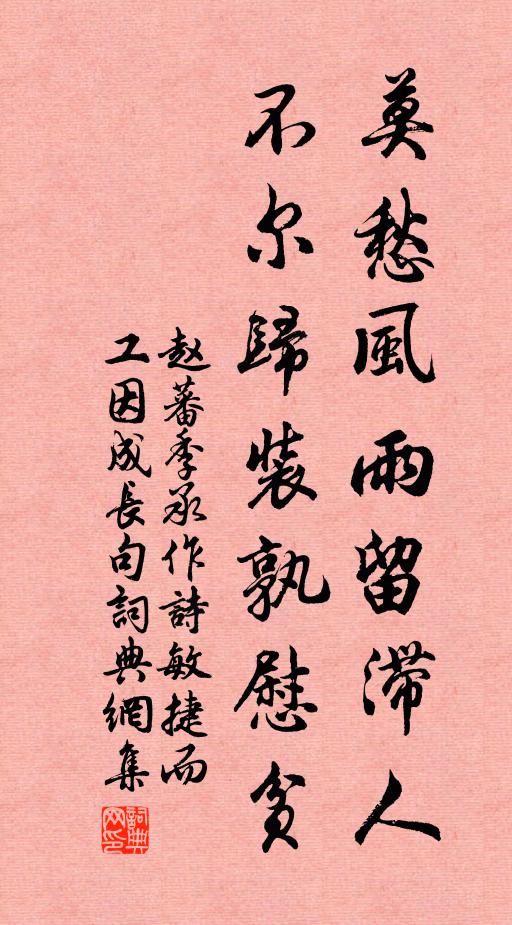 莫愁風雨留滯人
不尔歸裝孰慰貧
赵蕃季承作詩敏捷而
工因成長句詞典網集
詞典网印